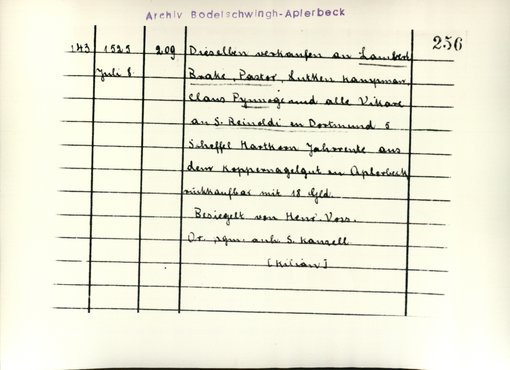 Archiv Bodelschwingh-Aplerbeck
256
143 1525 209 Dieselben verkaufen an Lambert
Juli 8. Brake, Pastor, Lutken Kampman,
Claus Pynnoge und alle Vikare
an S. Reinoldi in Dortmund 5
Scheffel Hartkorn Jahrrente aus
dem Koppernagelgut in Aplerbeck
rückkaufbar mit 18 Gld.
Besiegelt von Henr. Voss.
Or. anh. S. Kanzell.
[Kilian]